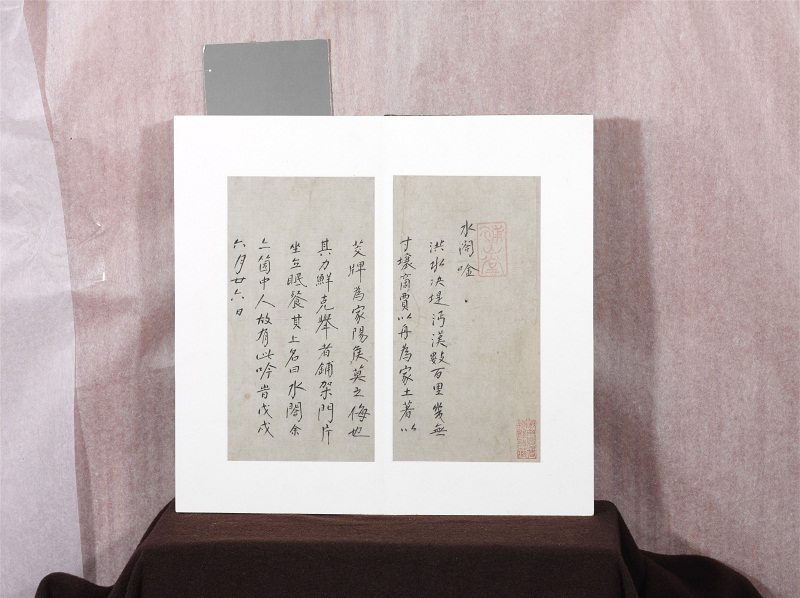 水閣唫
洪水决堤沔漢數百里幾無
寸壤商賈以舟為家土著以
茭牌為家陽侯莫之侮也
其力鮮克舉者鋪架門片
坐立眠餐其上名曰水閣余
亦箇中人故有此吟昔戊戌
六月廿六日